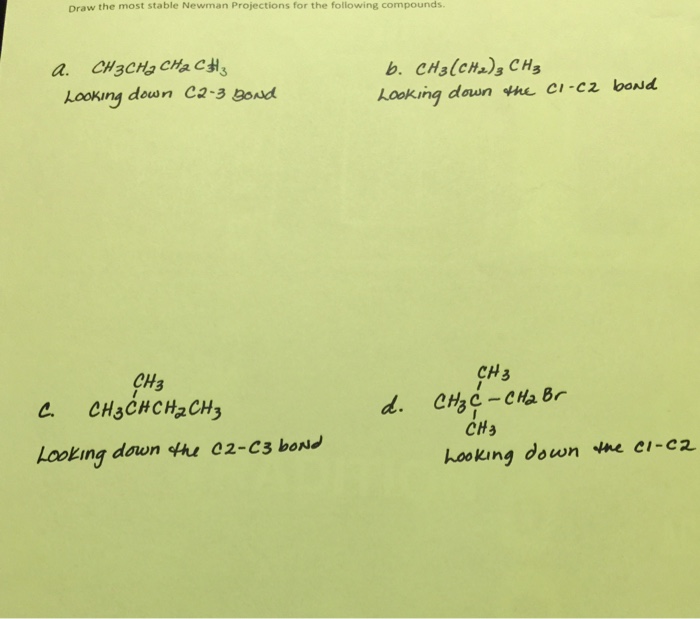 Draw the most stable Newman Projections for the following compounds.
a. CH3CH2CH2CH3
Looking down C2-3 Bond
b. CH3(CH2)3CH3
Looking down the C1-C2 bond
CH3
c. CH3CHCH2CH3
Looking down the C2-C3 bond
CH3
d. CH3C-CH2Br
CH3
Looking down the C1-C2